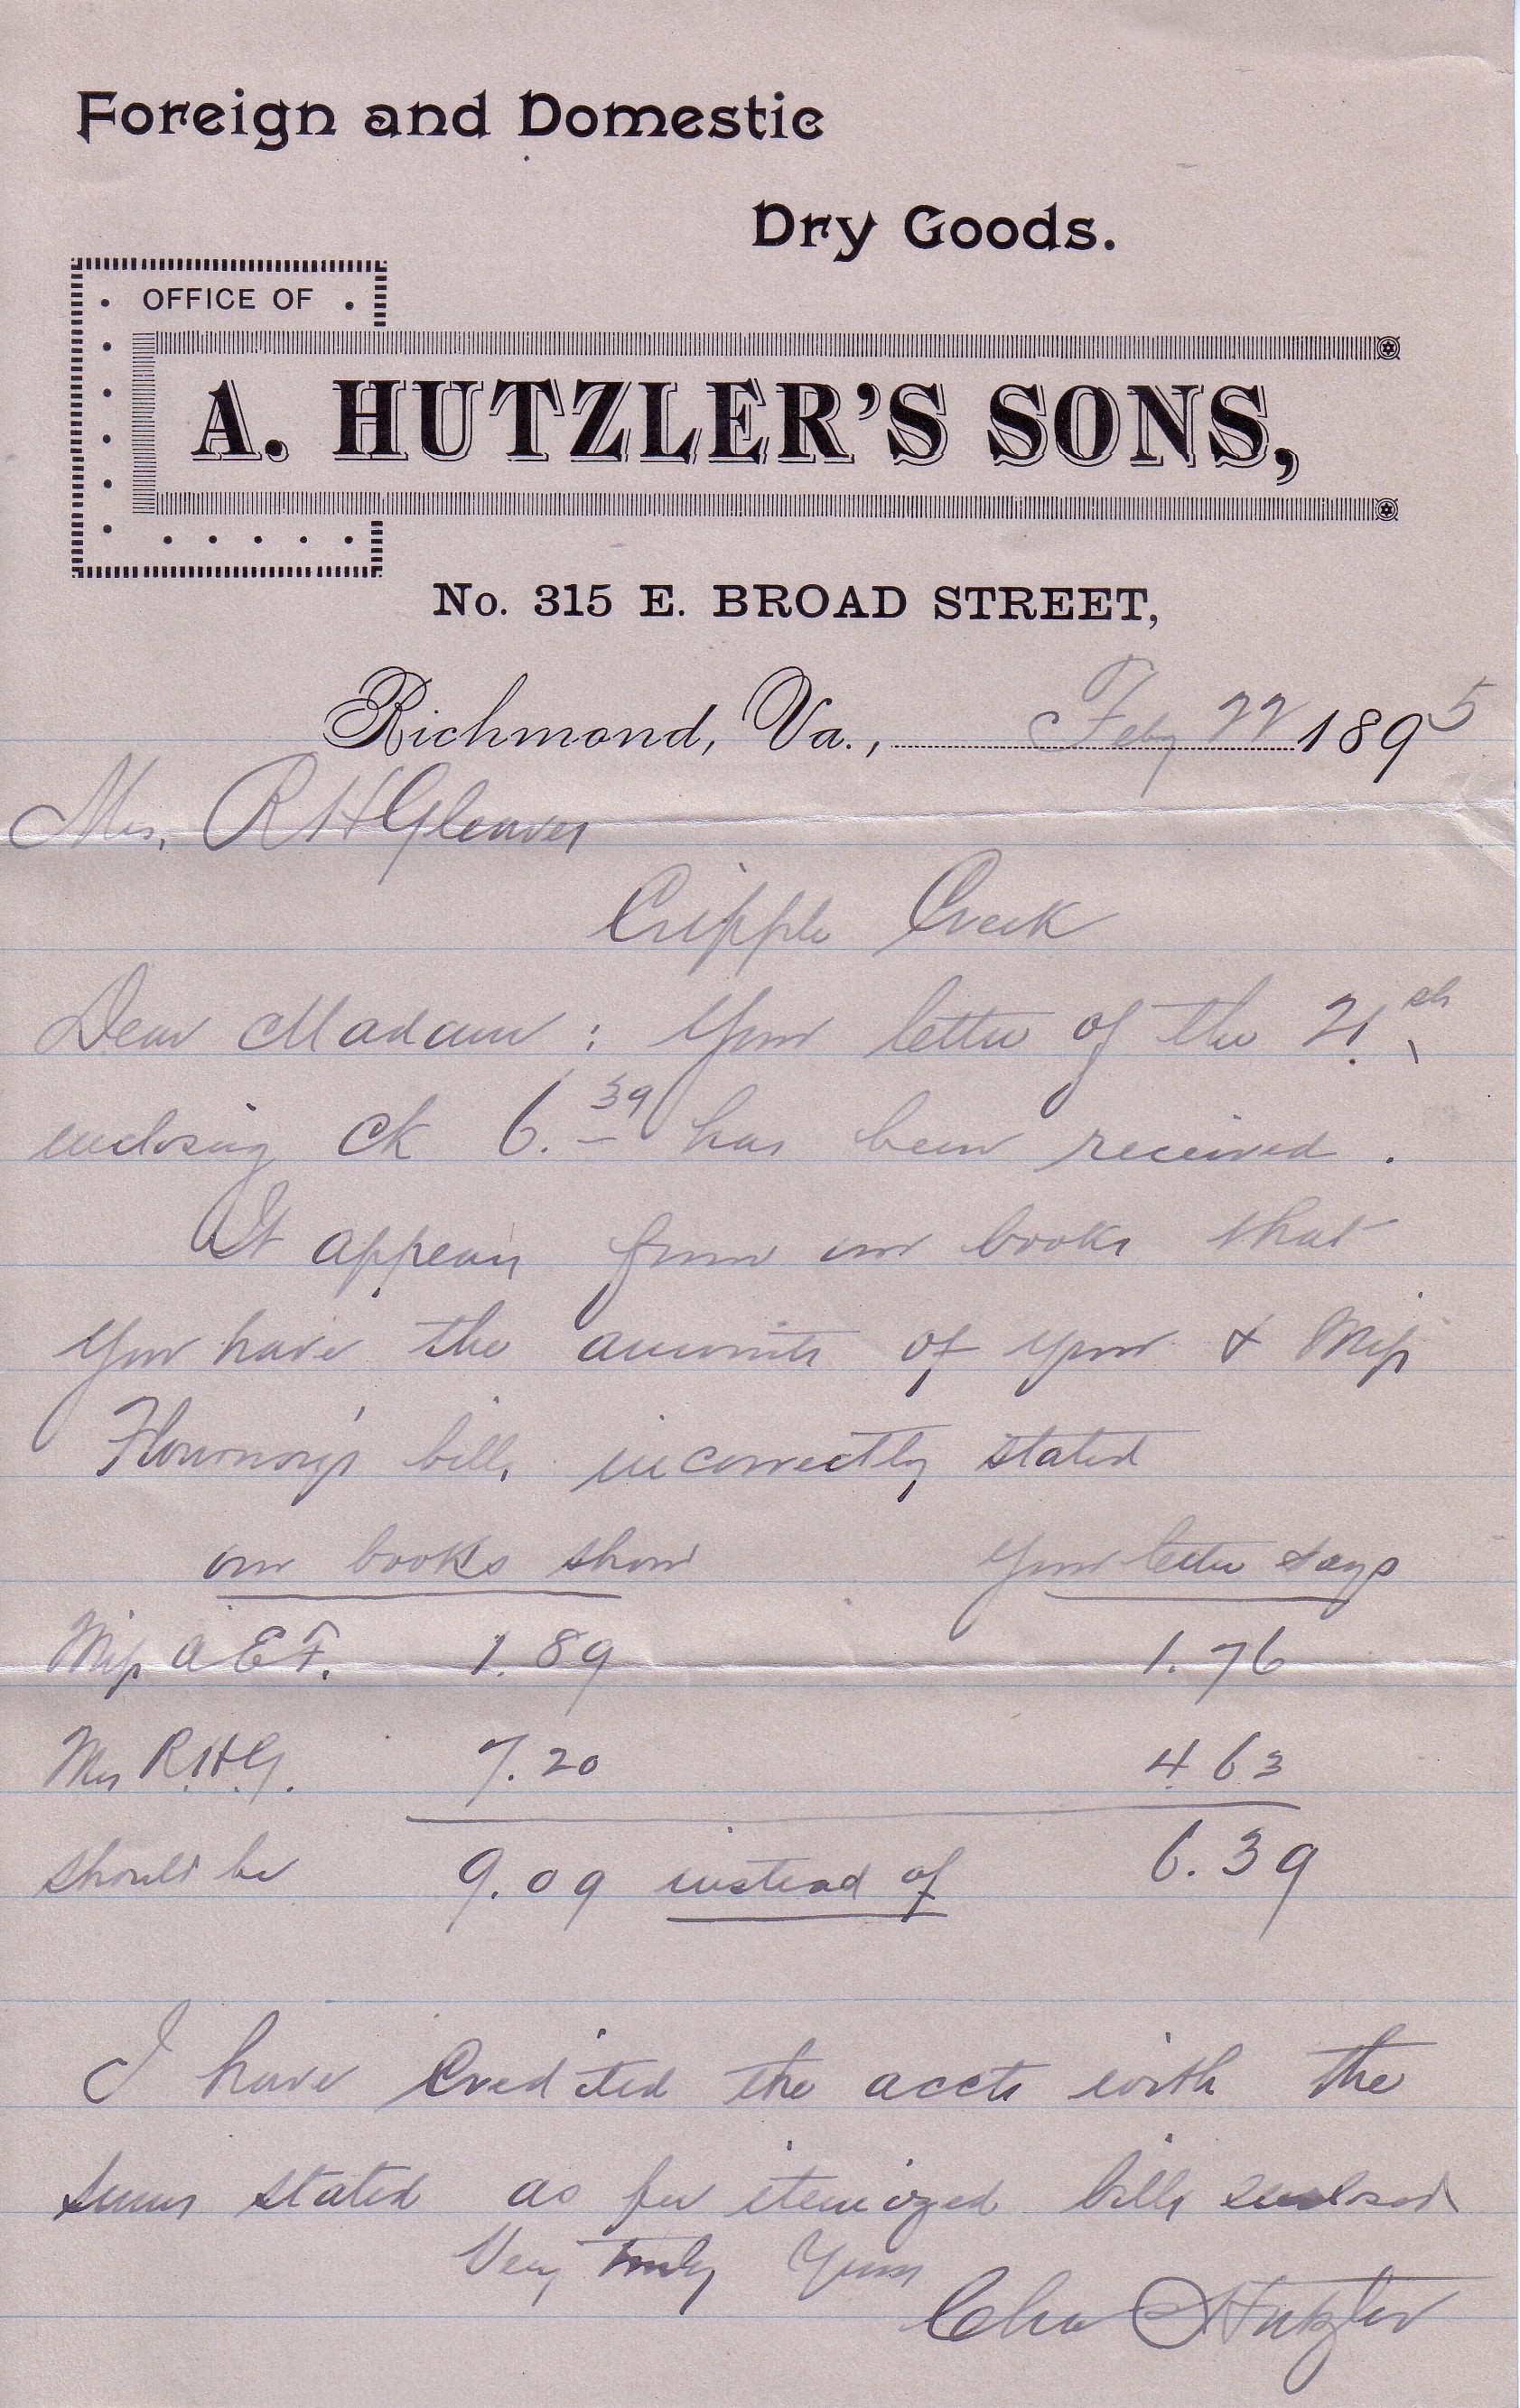 Foreign and Domestic
Dry Goods.
OFFICE OF
A. HUTZLER'S SONS,
No. 315 E. BROAD STREET,
Richmond, Va., Feby 22 1895
Mrs. R H Gleaves
Cripple Creek
Dear Madam : Your letter of the 21st
enclosing ck 6.39 has been received .
It appears from our books that
you have the amounts of your & Miss
Flournoy's bills incorrectly stated
our books show your letter says
Miss A E F. 1.89 1.76
Mrs R.H.G. 7.20 4.63
should be 9.09 instead of 6.39
I have Credited the accts with the
sums stated as per itemized bills enclosed
Very truly Yours
Chas Hutzler